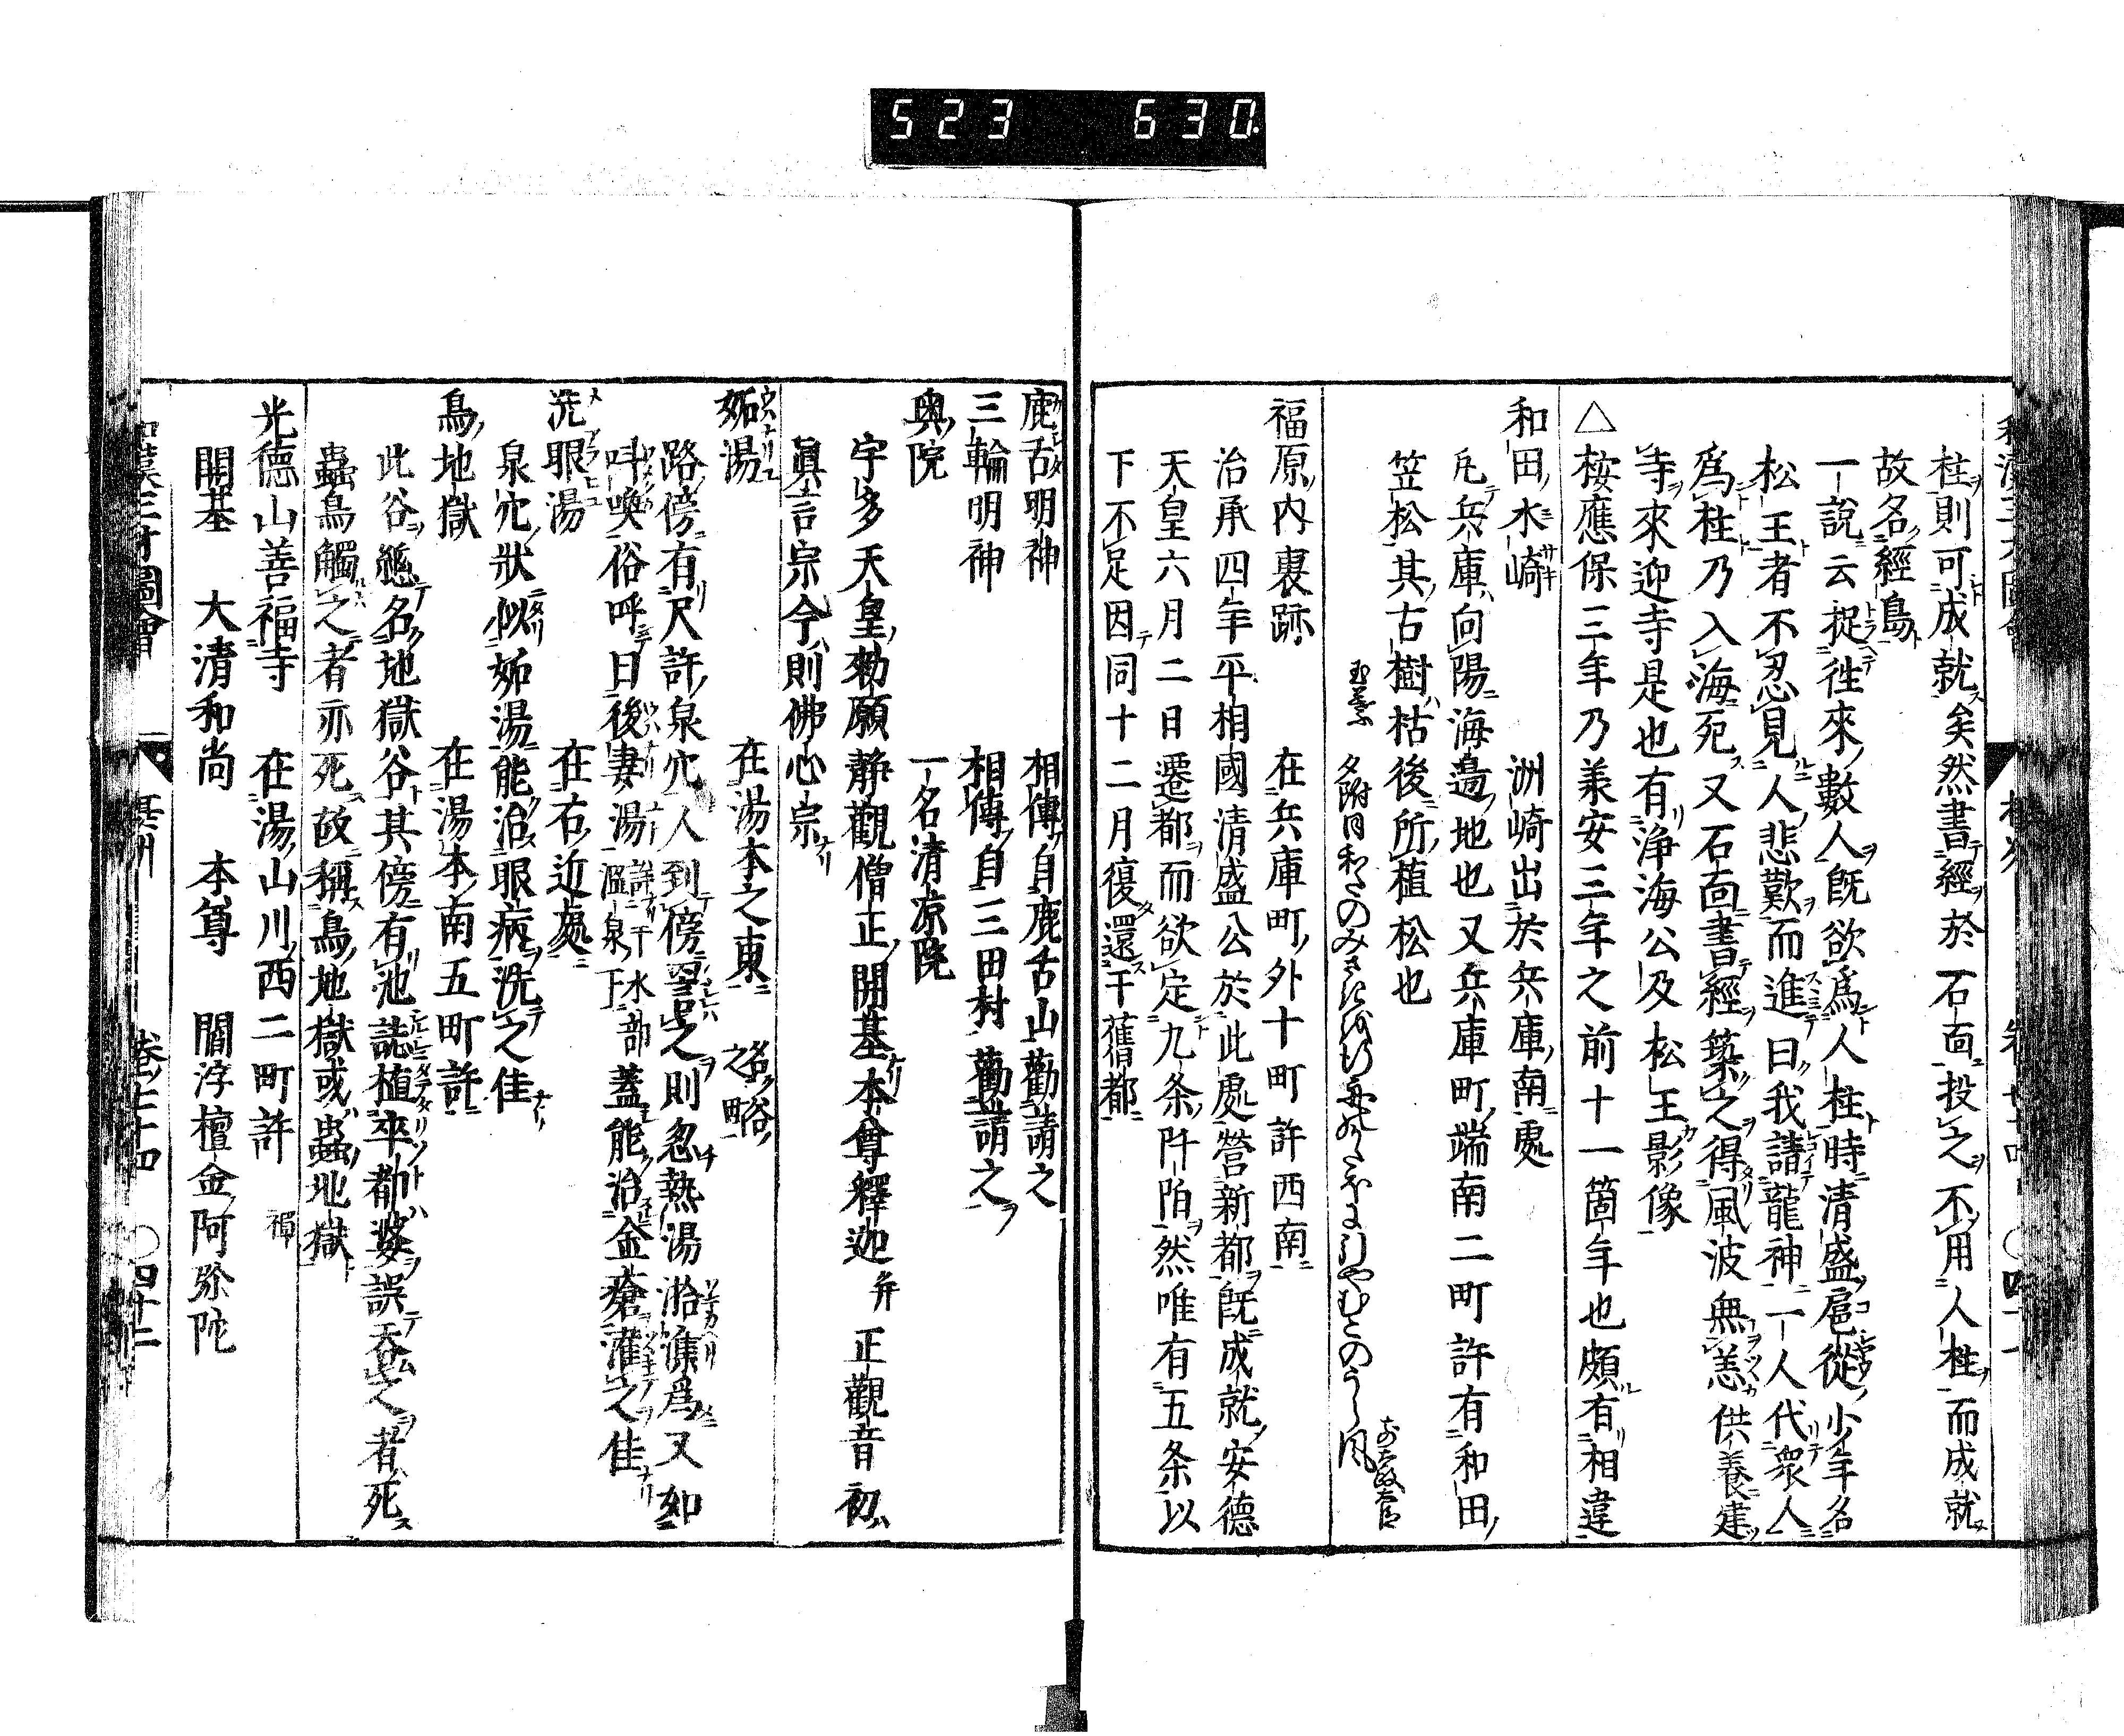 523 630
柱則可成就矣然書經於石面投之不用人柱而成就
故名經島
一說云捉徃來數人既欲爲人柱時清盛扈從少年名
松王者不忍見人悲歎而進曰我請龍神一人代衆人
爲柱乃入海死又石面書經築之得風波無恙供養建
寺來迎寺是也有浄海公及松王影像
△桉應保三年乃羕安三年之前十一箇年也頗有相違
和田水崎 洲崎出於兵庫南處
凡兵庫向陽海邉地也又兵庫町端南二町許有和田
笠松其古樹枯後所植松也
玉葉 夕附日和たのみさき
福原内裏跡 在兵庫町外十町許西南
治承四年平相國清盛公於此處營新都既成就安德
天皇六月二日遷都而欲定九条阡陌然唯有五条以
下不足因同十二月復還干舊都
鹿舌明神 相傳自鹿舌山勸請之
三輪明神 相傳自三田村勸請之
奥院 一名清凉院
宇多天皇勅願静觀僧正開基本尊釋迦并正觀音初
眞言宗今則佛心宗
妬湯 在湯本之東
路傍有尺許泉穴人到傍罵之則忽熱湯潝濈爲又如
呌喚俗呼曰後妻湯 詳干水部溫泉下 蓋能治金瘡灌之佳
洗眼湯 在右近處
泉穴狀似妬湯能治眼病洗之佳
鳥地獄 在湯本南五町許
此谷緫名地獄谷其傍有池誌植卒都婆誤呑之者死
蟲鳥觸之者亦死故稱鳥地獄或蟲地獄
光德山善福寺 在湯山川西二町許 禪
開基 大清和尚 本尊 閻浮檀金阿弥陀
和漢三才圖會 卷七十四 〇四十二